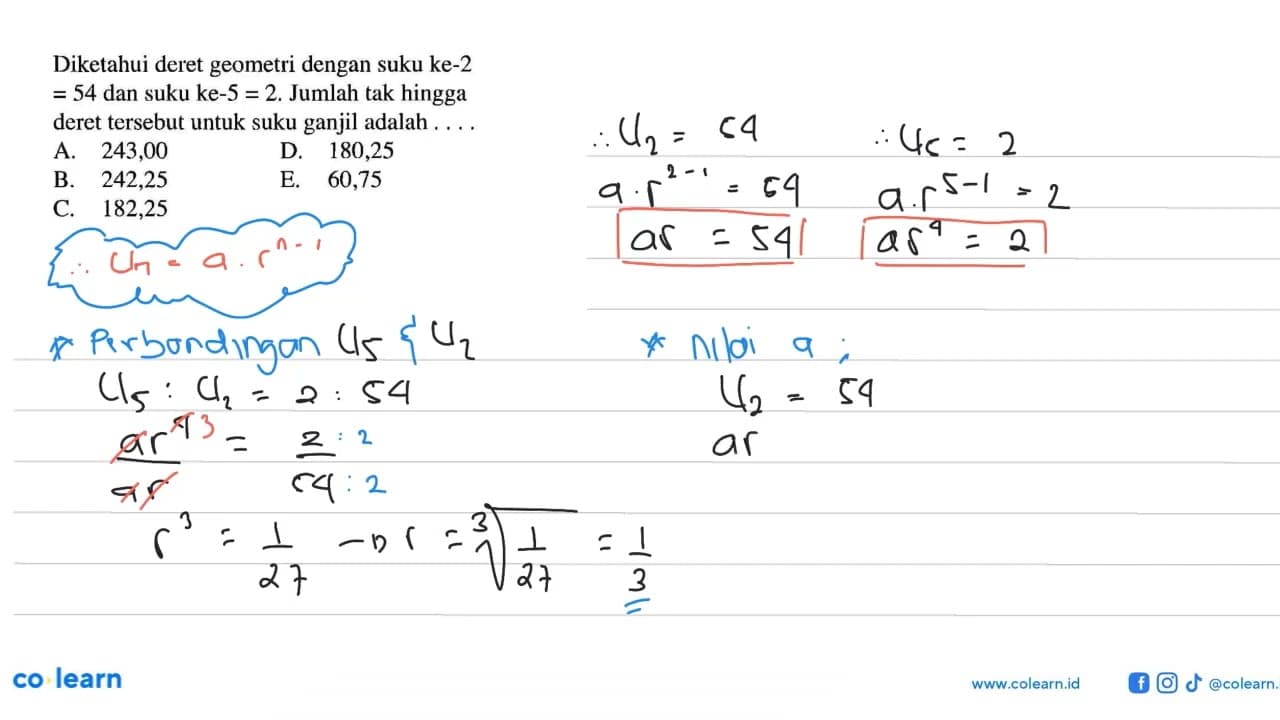 Diketahui deret geometri dengan suku ke-2
= 54 dan suku ke-5 = 2. Jumlah tak hingga
deret tersebut untuk suku ganjil adalah . . . .
A. 243,00 D. 180,25
B. 242,25 E. 60,75
C. 182,25
∴ Un = a . r^(n-1)
∴ U₂ = 54
a . r^(2-1) = 54
ar = 54
∴ U₅ = 2
a . r^(5-1) = 2
ar⁴ = 2
* Perbandingan U₅ & U₂
U₅ : U₂ = 2 : 54
ar⁴ ³ = 2 : 2
ar 54 : 2
r³ = 1/27 → r = ³√(1/27) = 1/3
* Nilai a :
U₂ = 54
ar
co learn
www.colearn.id
@colearn.